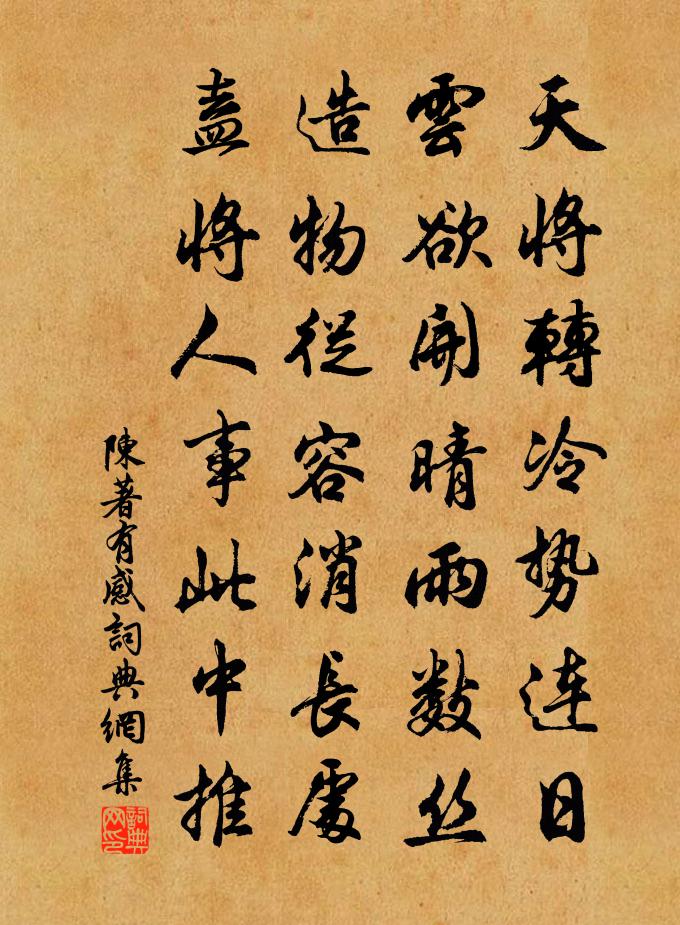 天將轉冷勢連日
雲欲開晴雨數丝
造物從容消長處
盍將人事此中推
陳著有感詞典網集
詞典网印